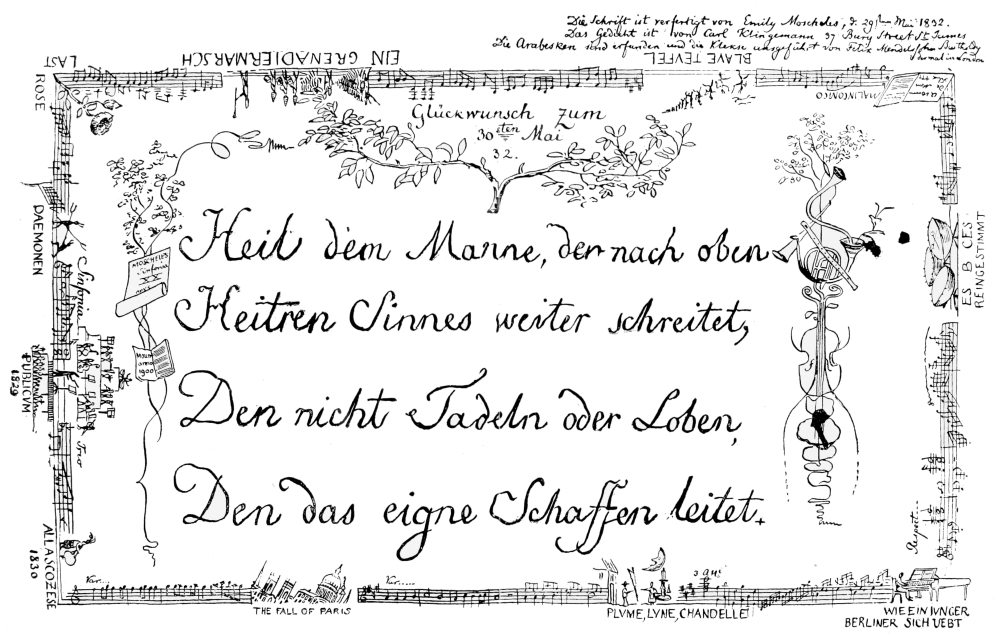 Die Schrift ist verfertigt von Emily Moscheles, d. 29sten Mai 1832.
Das Gedicht ist von Carl Klingemann 37 Bury Street St. James
Die Arabesken sind erfunden und die Klexe ausgeführt von Felix Mendelssohn Bartholdy
LAST
ROSE
EIN GRENADIERMARSCH
BLAVE TEVFEL
MALINCONICO
Glückwunsch zum
30sten Mai
32.
Heil dem Manne, der nach oben
Heitren Sinnes weiter schreitet,
Den nicht Tadeln oder Loben,
Den das eigne Schaffen leitet.
MOSCHELES
Sinfonia
XX
DAEMONEN
Sinfonia
PUBLICVM
1829
Trio
ALLA SCOZESE
1830
ES B CES
REINGESTIMMT
Var...
THE FALL OF PARIS
Var.....
PLVME, LVNE, CHANDELLE
WIE EIN IUNGER
BERLINER SICH UEBT